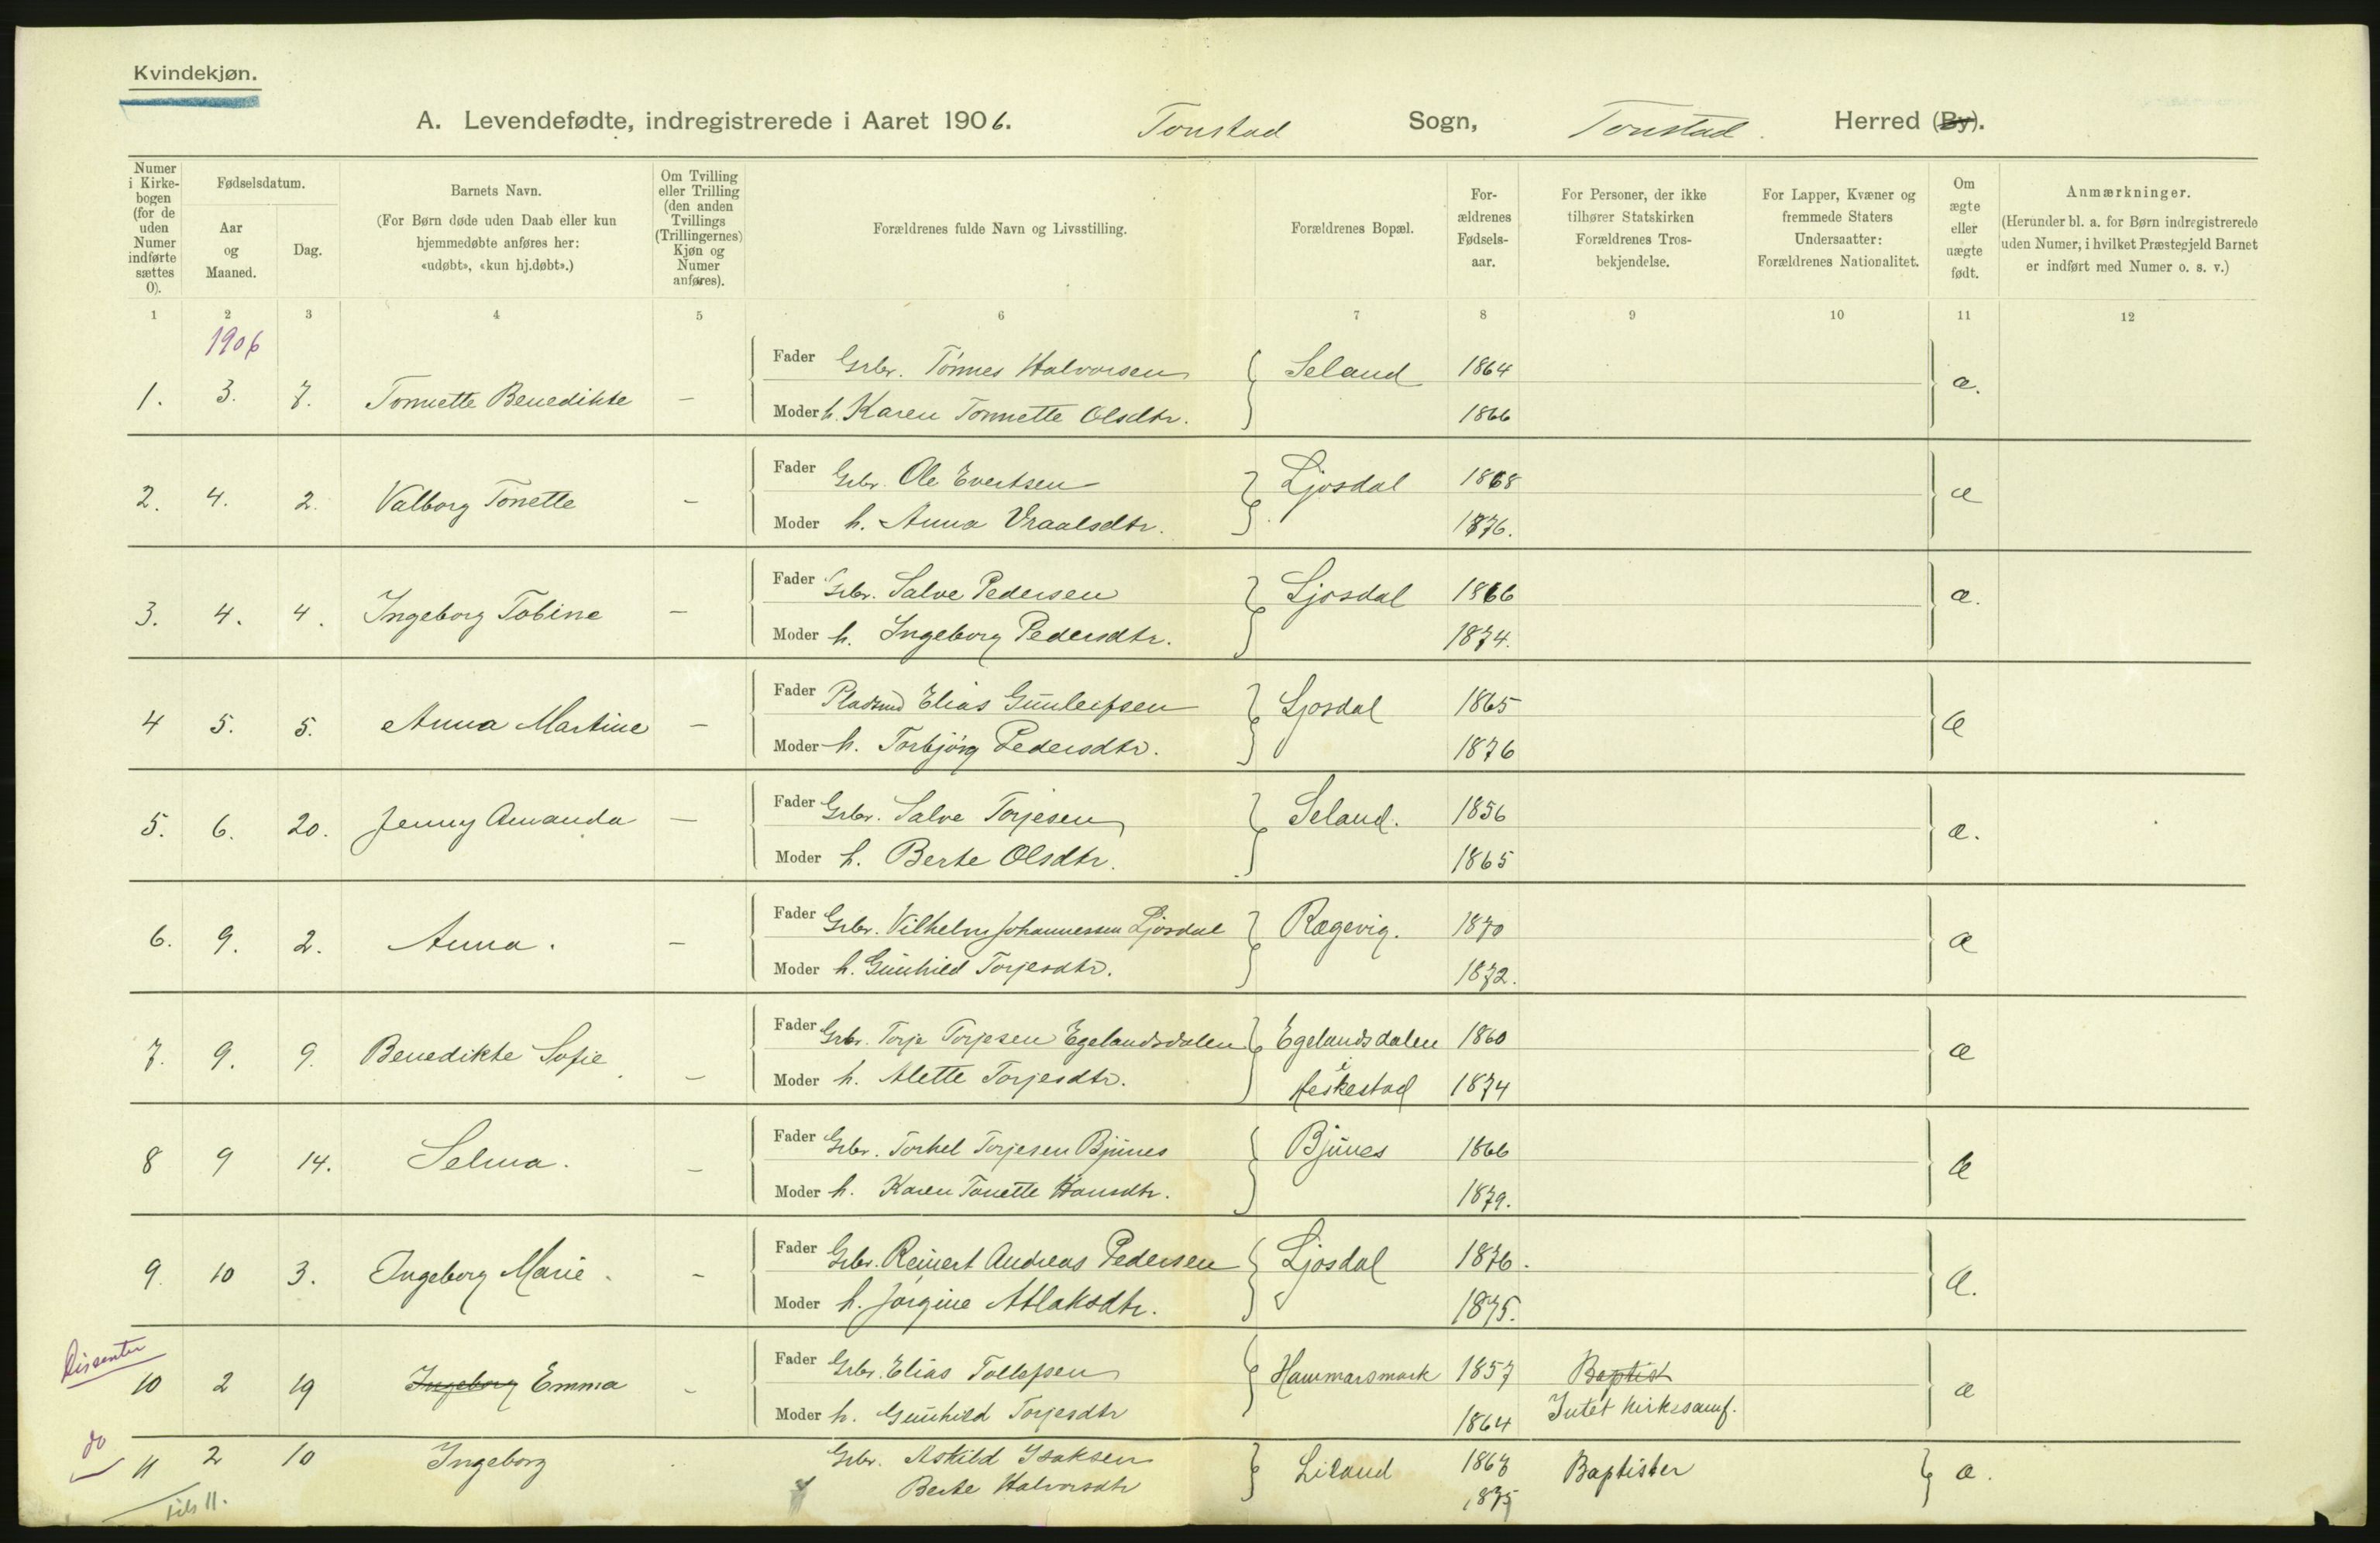 Kvindekjøn.
A. Levendefødte, indregistrerede i Aaret 1906. Tonstad Sogn, Tonstad Herred (By).
Numer i Kirkebogen (for de uden Numer indførte sættes 0).
Fødselsdatum.
Aar og Maaned.
Dag.
Barnets Navn.
(For Børn døde uden Daab eller kun hjemmedøbte anføres her: «udøbt», «kun hj.døbt».)
Om Tvilling eller Trilling (den anden Tvillings (Trillingernes) Kjøn og Numer anføres).
Forældrenes fulde Navn og Livsstilling.
Forældrenes Bopæl.
Forældrenes Fødselsaar.
For Personer, der ikke tilhører Statskirken Forældrenes Trosbekjendelse.
For Lapper, Kvæner og fremmede Staters Undersaatter: Forældrenes Nationalitet.
Om ægte eller uægte født.
Anmærkninger.
(Herunder bl. a. for Børn indregistrerede uden Numer, i hvilket Præstegjeld Barnet er indført med Numer o. s. v.)
1 2 3 4 5 6 7 8 9 10 11 12
1906
Fader Grbr. Tønnes Halvorsen Seland 1864
1. 3. 7. Tonnette Benedikte – æ.
Moder h. Karen Tonnette Olsdtr. 1866
Fader Grbr. Ole Evertsen Ljosdal 1868
2. 4. 2. Valborg Tonette – æ
Moder h. Anna Vraalsdtr. 1876.
Fader Grbr. Salve Pedersen Ljosdal 1866
3. 4. 4. Ingeborg Tobine – æ.
Moder h. Ingeborg Pedersdtr. 1874.
Fader Pladsmd Elias Gunleifsen Ljosdal 1865
4 5. 5. Anna Martine – æ
Moder h. Torbjørg Pedersdtr. 1876
Fader Grbr. Salve Torjesen Seland. 1856
5. 6. 20. Jenny Amanda – æ.
Moder h. Berte Olsdtr. 1865
Fader Grbr. Vilhelm Johannessen Ljosdal Rægevig. 1870
6. 9. 2. Anna. – æ
Moder h. Gunhild Torjesdtr. 1872.
Fader Grbr. Torje Torjesen Egelandsdalen Egelandsdalen 1860
7. 9. 9. Benedikte Sofie – i æ
Moder h. Alette Torjesdtr. Heskestad 1874
Fader Grbr. Torkel Torjesen Bjunes Bjunes 1866
8 9 14. Selma. – æ
Moder h. Karen Tonette Hansdtr. 1879.
Fader Grbr. Reinert Andreas Pedersen Ljosdal 1876.
9. 10 3. Ingeborg Marie. – æ.
Moder h. Jørgine Atlaksdtr. 1875.
Dissenter
Fader Grbr. Elias Tollefsen Hammarsmark 1857 Baptist
10 2 19 Ingeborg Emma – æ
Moder h. Gunhild Torjesdtr 1864 Intet kirkesamf.
do
11 2 10 Ingeborg Grbr. Askild Isaksen Liland 1867 Baptister æ.
Berte Halvorsdtr 1875
tils 11.